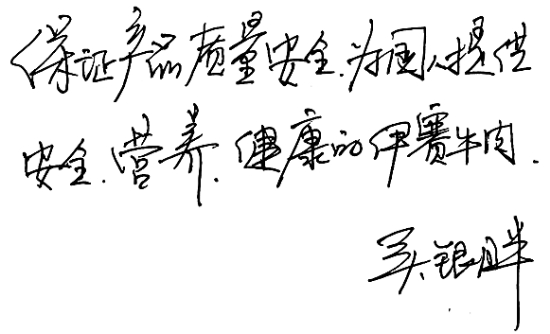 保证产品质量安全.为国人提供
安全.营养.健康的伊赛牛肉.
银胖